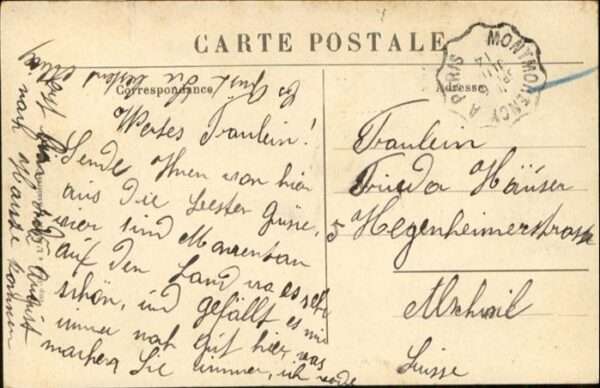 CARTE POSTALE
Correspondance
Adresse
MONTMORENCY A PARIS
Wertes Fraulein!
Sende Ihnen von hier
aus Die besten Grüse,
wier sind Momentan
auf den Land wo es sehr
schön, und gefällt es mir
immer noch gut hier, was
machen Sie immer, ich werde
nach Hause kommen
Es Grüst Sie bestens
Fraulein
Frieda Häuser
5 Hegenheimerstrasse
Alschwil
Suisse